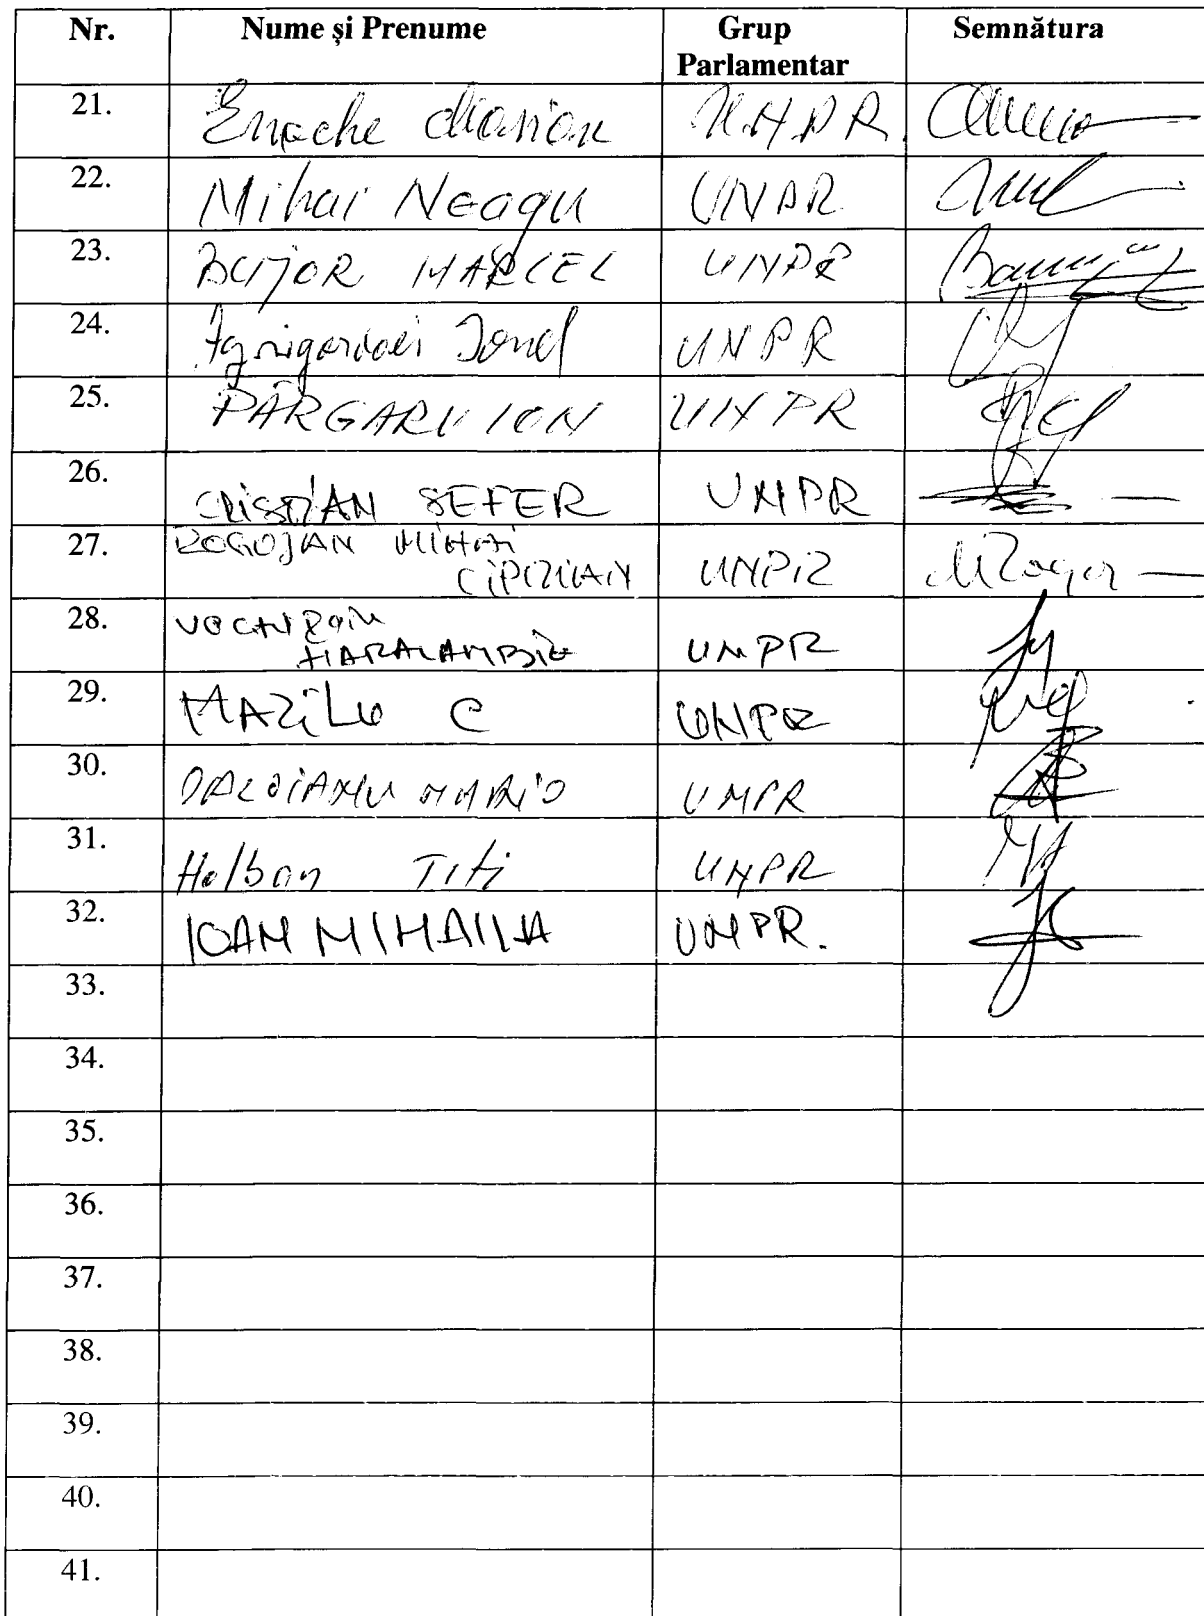 Nr. Nume și Prenume Grup Parlamentar Semnătura
21. Enache Marian U.N.P.R.
22. Mihai Neagu UNPR
23. BUJOR MARCEL UNPR
24. Ionel UNPR
25. PÂRGARU ION UNPR
26. CRISTIAN SEFER UNPR
27. ROGOJAN MIHAI
CIPRIAN UNPR
28. VOCHIȚOIU
HARALAMBIE UNPR
29. MAZILU C UNPR
30. UNPR
31. Holban Titi UNPR
32. IOAN MIHAILA UNPR.
33.
34.
35.
36.
37.
38.
39.
40.
41.